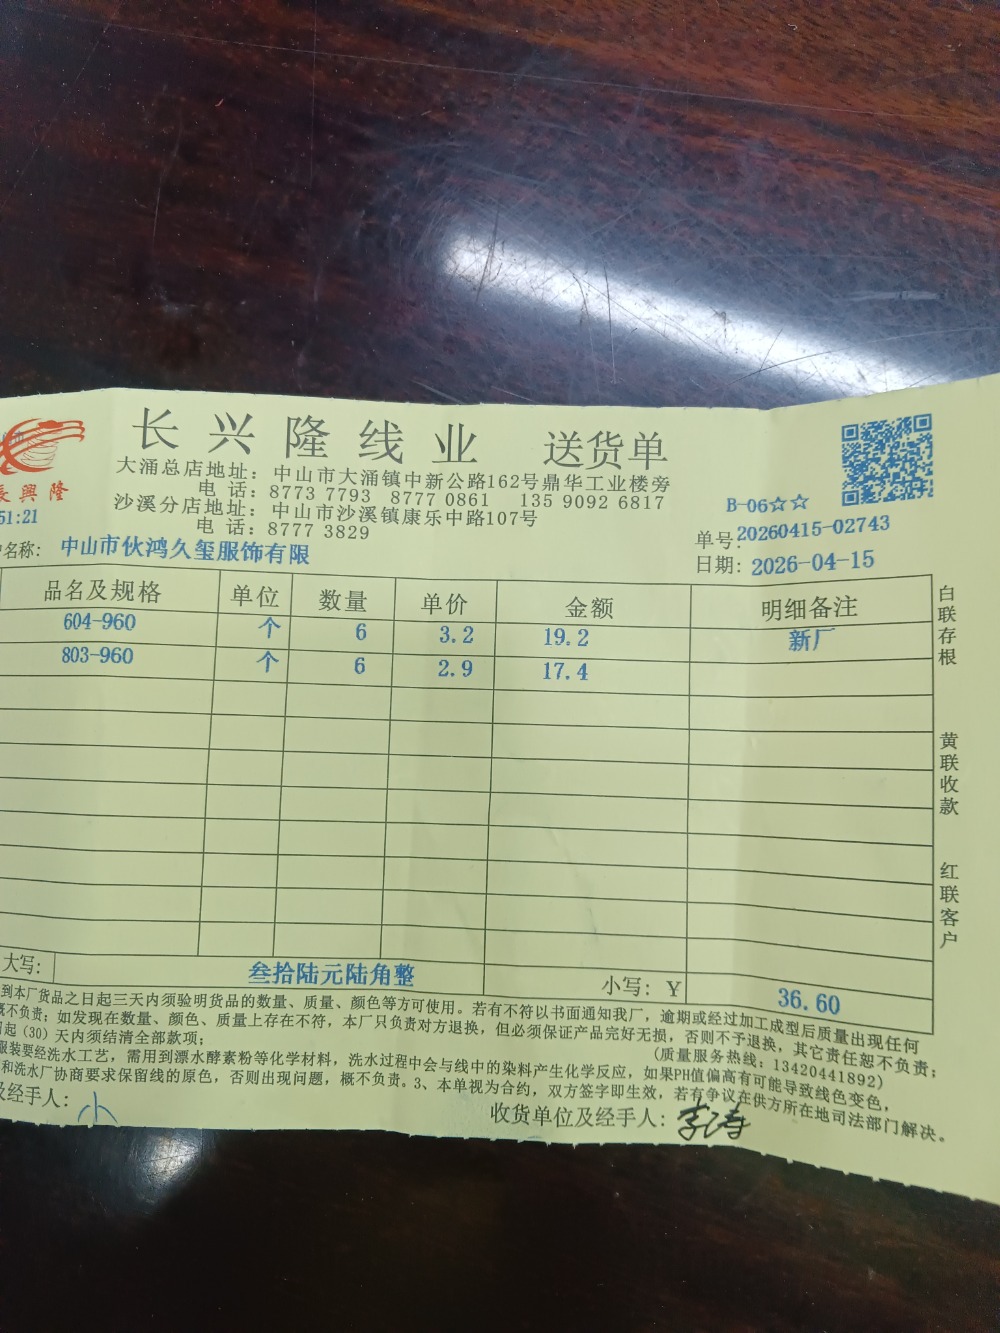 長興隆
51:21
长兴隆线业 送货单
大涌总店地址：中山市大涌镇中新公路162号鼎华工业楼旁
电 话：8773 7793 8777 0861 135 9092 6817
沙溪分店地址：中山市沙溪镇康乐中路107号
电 话：8777 3829
B-06☆☆
单号：20260415-02743
日期：2026-04-15
名称：中山市伙鸿久玺服饰有限
品名及规格 单位 数量 单价 金额 明细备注
604-960 个 6 3.2 19.2 新厂
803-960 个 6 2.9 17.4
白联存根
黄联收款
红联客户
大写：叁拾陆元陆角整 小写：Y 36.60
到本厂货品之日起三天内须验明货品的数量、质量、颜色等方可使用。若有不符以书面通知我厂，逾期或经过加工成型后质量出现任何
概不负责；如发现在数量、颜色、质量上存在不符，本厂只负责对方退换，但必须保证产品完好无损，否则不予退换，其它责任恕不负责；
起（30）天内须结清全部款项； (质量服务热线：13420441892)
服装要经洗水工艺，需用到漂水酵素粉等化学材料，洗水过程中会与线中的染料产生化学反应，如果PH值偏高有可能导致线色变色，
和洗水厂协商要求保留线的原色，否则出现问题，概不负责。3、本单视为合约，双方签字即生效，若有争议在供方所在地司法部门解决。
及经手人：小 收货单位及经手人：李涛